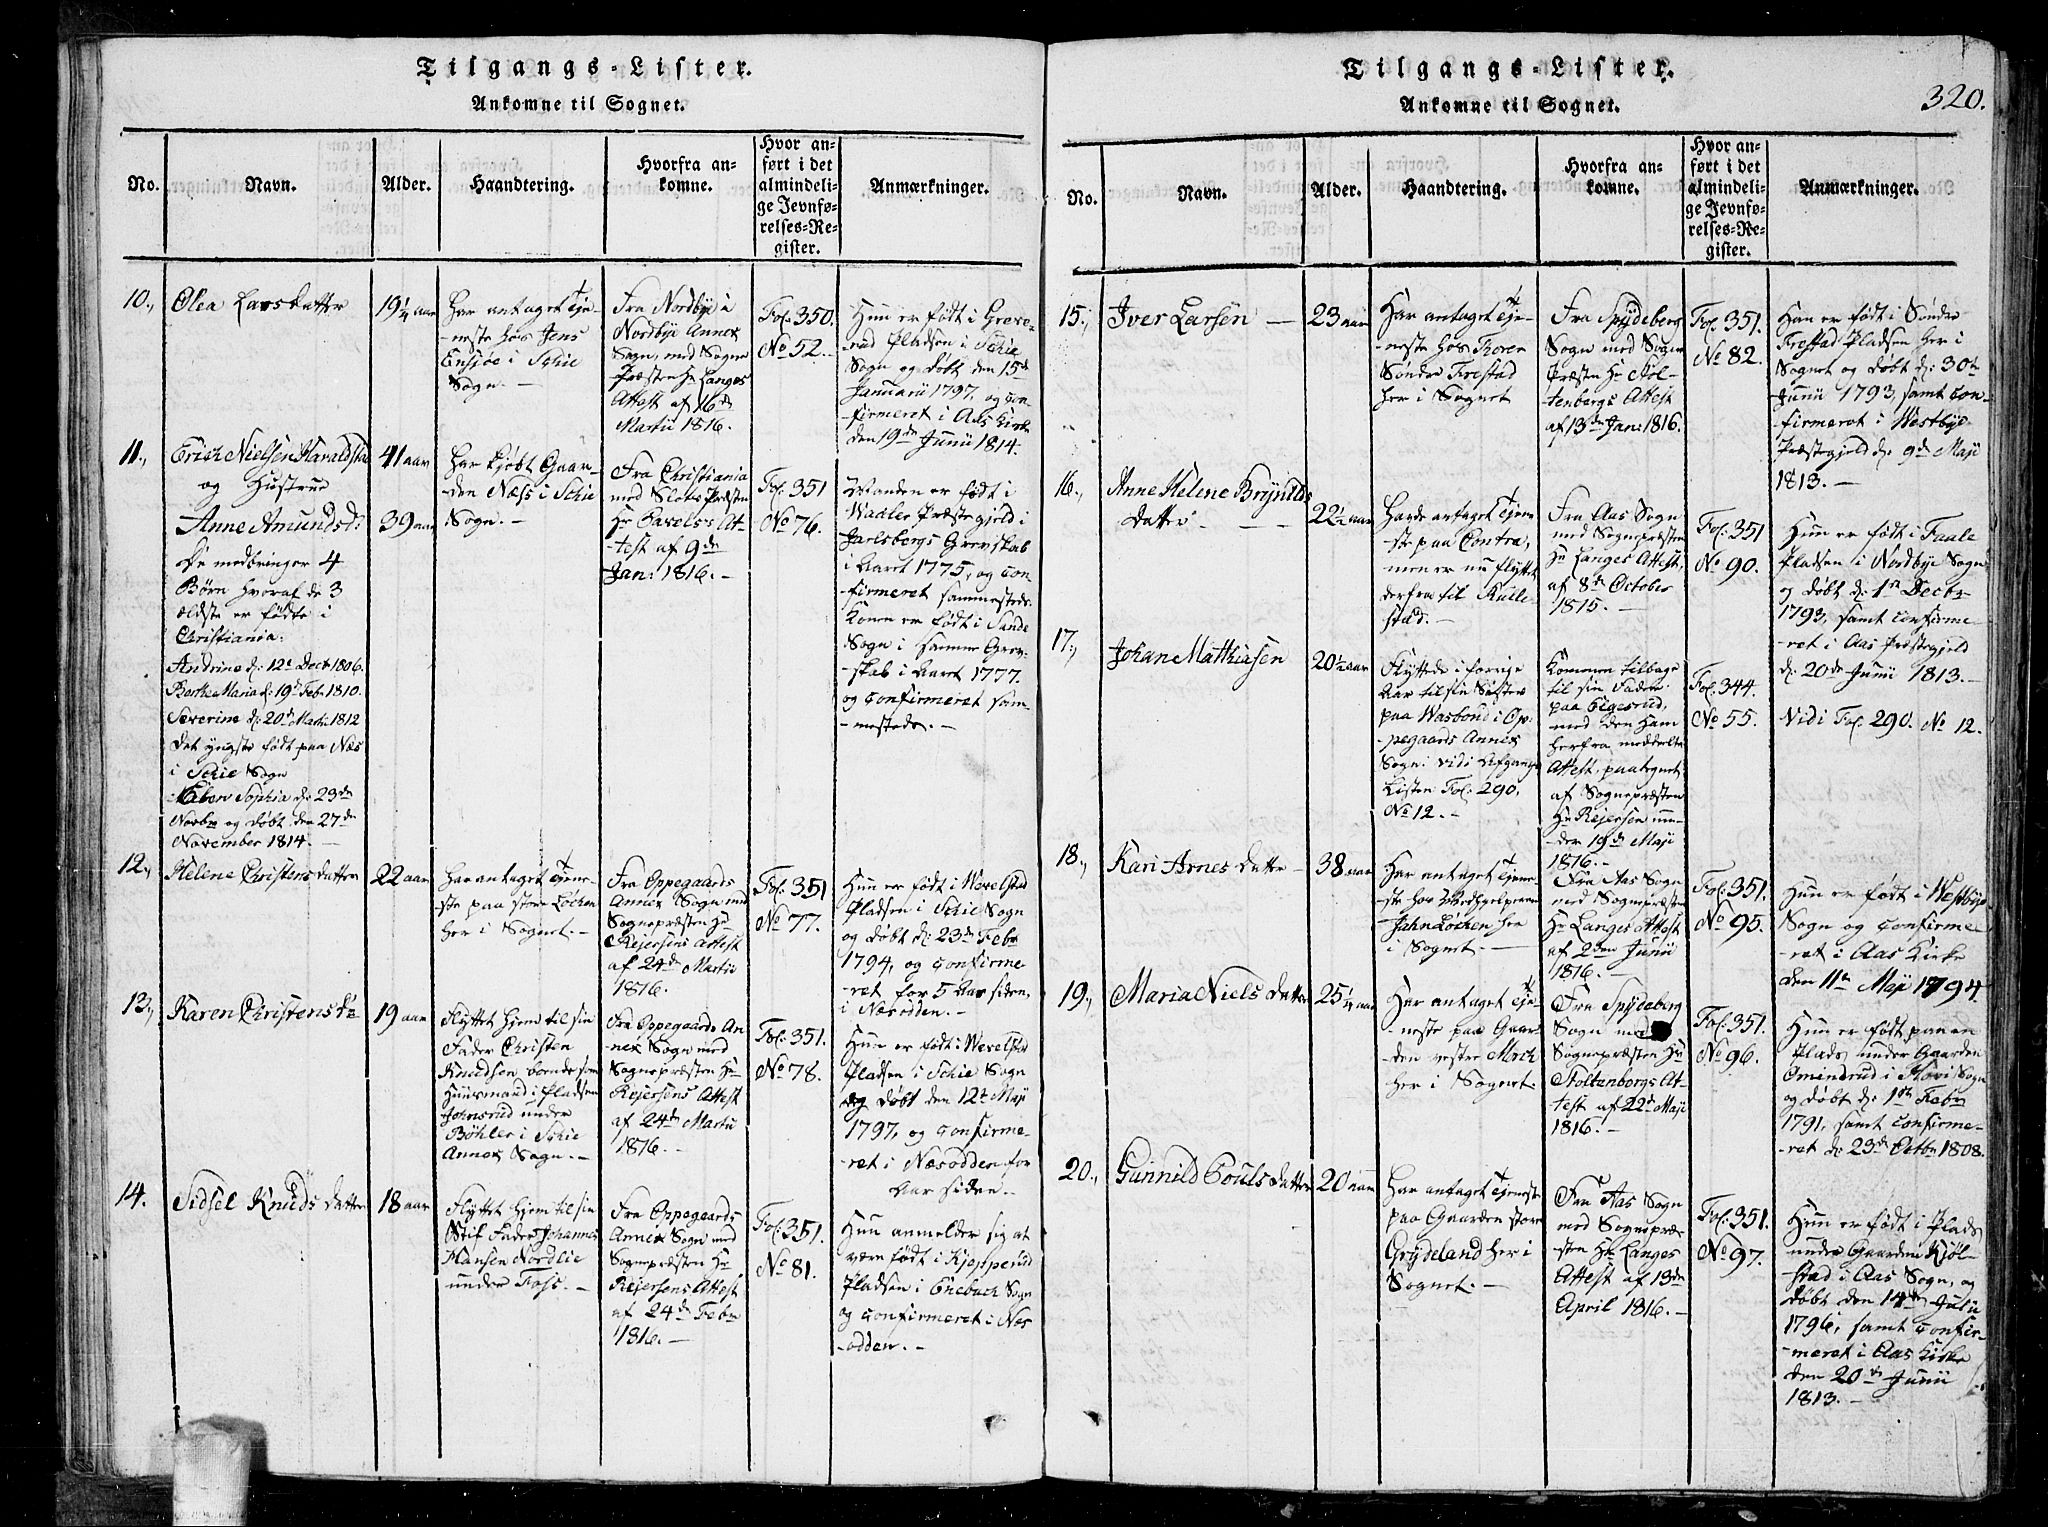 Tilgangs-Lister.
Ankomne til Sognet.
No.
Navn.
Alder.
Haandtering.
Hvorfra an-
komne.
Hvor an-
ført i det
almindeli-
ge Jevnfø-
relses-Re-
gister.
Anmærkninger.
10.,
Olea Larsdatter
19¼ aar
Har antaget Tje-
-neste hos Jens
Ensjøe i Schie
Sogn. -
Fra Nordbye i
Nordbye Annex
Sogn, med Sogne
Præsten Hr Langes
Attest af 16de
Martii 1816.
Fol: 350.
No 52. -
Hun er født i Greve-
rud Pladsen i Schie
Sogn og døbt den 15de
Januarii 1797, og con-
firmeret i Aas Kirke
den 19de Junii 1814. -
11.,
Erich Nielsen Haraldstad
og Hustrue
Anne Amundsdr
De medbringer 4
Børn hvoraf de 3
ældste er fødte i
Christiania:
Andrine d: 12te Decbr 1806.
Berthe Maria d: 19de Febr 1810.
Severine d: 20de Martii 1812
det yngste født paa Næs
i Schie Sogn
Maren Sophia d: 23de
Novbr og døbt den 27de
November 1814. -
41 aar
39 aar
Har kjøbt Gaar-
den Næss i Schie
Sogn. -
Fra Christiania
med Slots Præsten
Hr Pavels's At-
-test af 9de
Jan: 1816. -
Fol: 351
No 76.
Manden er født i
Præstegjeld i
Jarlsbergs Grevskab
i Aaret 1775, og con-
firmeret sammesteds.
Konen er født i Sande
Sogn i samme Grev-
-skab i Aaret 1777.
og confirmeret sam-
-mesteds. -
12.,
Helene Christensdatter
22 aar
Har antaget Tjene-
-ste paa store Løcken
her i Sognet. -
Fra Oppegaards
Annex Sogn med
Sognepræsten Hr
Rejersens Attest
af 24de Martii
1816.
Fol: 351
No 77.
Hun er født i Wevelstad
Pladsen i Schie Sogn
og døbt d: 23de Febr
1794, og confirme-
ret for 5 Aar siden,
i Næsodden. -
13.,
Karen Christensdr
19 aar
Flyttet hjem til sin
Fader Christen
Knudsen boende som
Huusmand i Pladsen
Johnsrud under
Bøhler i Schie
Annex Sogn. -
Fra Oppegaards An-
nex Sogn med
Sognepræsten Hr
Rejersens Attest
af 24de Martii
1816. -
Fol: 351.
No 78.
Hun er født i Wevelstad
Pladsen i Schie Sogn
og døbt den 12te Maji
1797, og confirme-
-ret i Næsodden for
Aar siden. -
14.
Sidsel Knudsdatter
18 aar
Flyttet hjem til sin
Stif Fader Johannes
Hansen Nordlie
under Foss. -
Fra Oppegaards
Annex Sogn med
Sognepræsten Hr
Rejersens Attest
af 24de Febr
1816. -
Fol: 351.
No 81.
Hun anmelder sig at
være født i
Pladsen i Enebach Sogn
og confirmeret i Næs
odden. -
Tilgangs-Lister.
Ankomne til Sognet.
320.
No.
Navn.
Alder.
Haandtering.
Hvorfra an-
komne.
Hvor an-
ført i det
almindeli-
ge Jevnfø-
relses-Re-
gister.
Anmærkninger.
15.,
Iver Larsen -
23 aar
Har antaget Tje-
-neste hos Thoren
Søndre Frestad
her i Sognet
Fra Spydeberg
Sogn med Sogne
Præsten Hr Stol-
tenbergs Attest
af 13de Jan: 1816.
Fol: 351.
No 82.
Han er født i Søndre
Frestad Pladsen her i
Sognet og døbt d: 30te
Junii 1793, samt con-
firmeret i Westbye
Præstegjeld d: 9de Maji
1813. -
16.,
Anne Helene Brynilds
datter - -
22½ aar
Havde antaget Tjene-
-ste paa Contra,
men er nu flyttet
derfra til Kulle-
stad. -
Fra Aas Sogn
med Sognepræsten
Hr Langes Attest,
af 8de October
1815. -
Fol: 351
No 90.
Hun er født i Faale
Pladsen i Nordbye Sogn
og døbt d: 1ste Decbr
1793, samt confirme-
-ret i Aas Præstegjeld
d: 20de Junii 1813. -
17.,
Johan Matthiasen
20½ aar
Flyttede i forrige
Aar til sin Søster
paa Wasbond i Op-
-pegaards Annex
Sogn: vidi Afgangs
Listen Fol: 290,
No 12. -
Kommen tilbage
til sin Fader
paa Eigesrud,
med den ham
herfra meddelte
Attest, paategnet
af Sognepræsten
Hr Rejersen un-
der 19de Maji
1816. -
Fol: 344.
No 55.
Vidi Fol: 290. No 12.
18.,
Kari Arnes datter -
38 aar
Har antaget Tjene-
-ste hos Medhjelperen
John Løcken her
i Sognet. -
Fra Aas Sogn
med Sognepræsten
Hr Langes Attest
af 2den Junii
1816. -
Fol: 351.
No 95.
Hun er født i Westbye
Sogn og confirme-
-ret i Aas Kirke
den 11te Maji 1794.
19.,
Maria Niels datter
25¼ aar
Har antaget Tje-
-neste paa Gaar-
den vestre Mork
her i Sognet. -
Fra Spydeberg
Sogn med
Sognepræsten Hr
Stoltenbergs At-
test af 22de Maji
1816. -
Fol: 351.
No 96.
Hun er født paa en
Plads under Gaarden
Omindrud i Skovi Sogn
og døbt d: 1ste Febr
1791, samt confirme-
-ret d: 23de Octbr 1808.
20.,
Gunnild Pouls datter
20 aar
Har antaget Tjeneste
paa Gaarden store
Grydeland her i
Sognet. -
Fra Aas Sogn
med Sognepræ-
sten Hr Langes
Attest af 13de
April 1816. -
Fol: 351.
No 97.
Hun er født i Plads
under Gaarden Kjøl-
-stad i Aas Sogn, og
døbt den 14de Julii
1796, samt confir-
-meret i Aas Kirke
den 20de Junii
1813. -